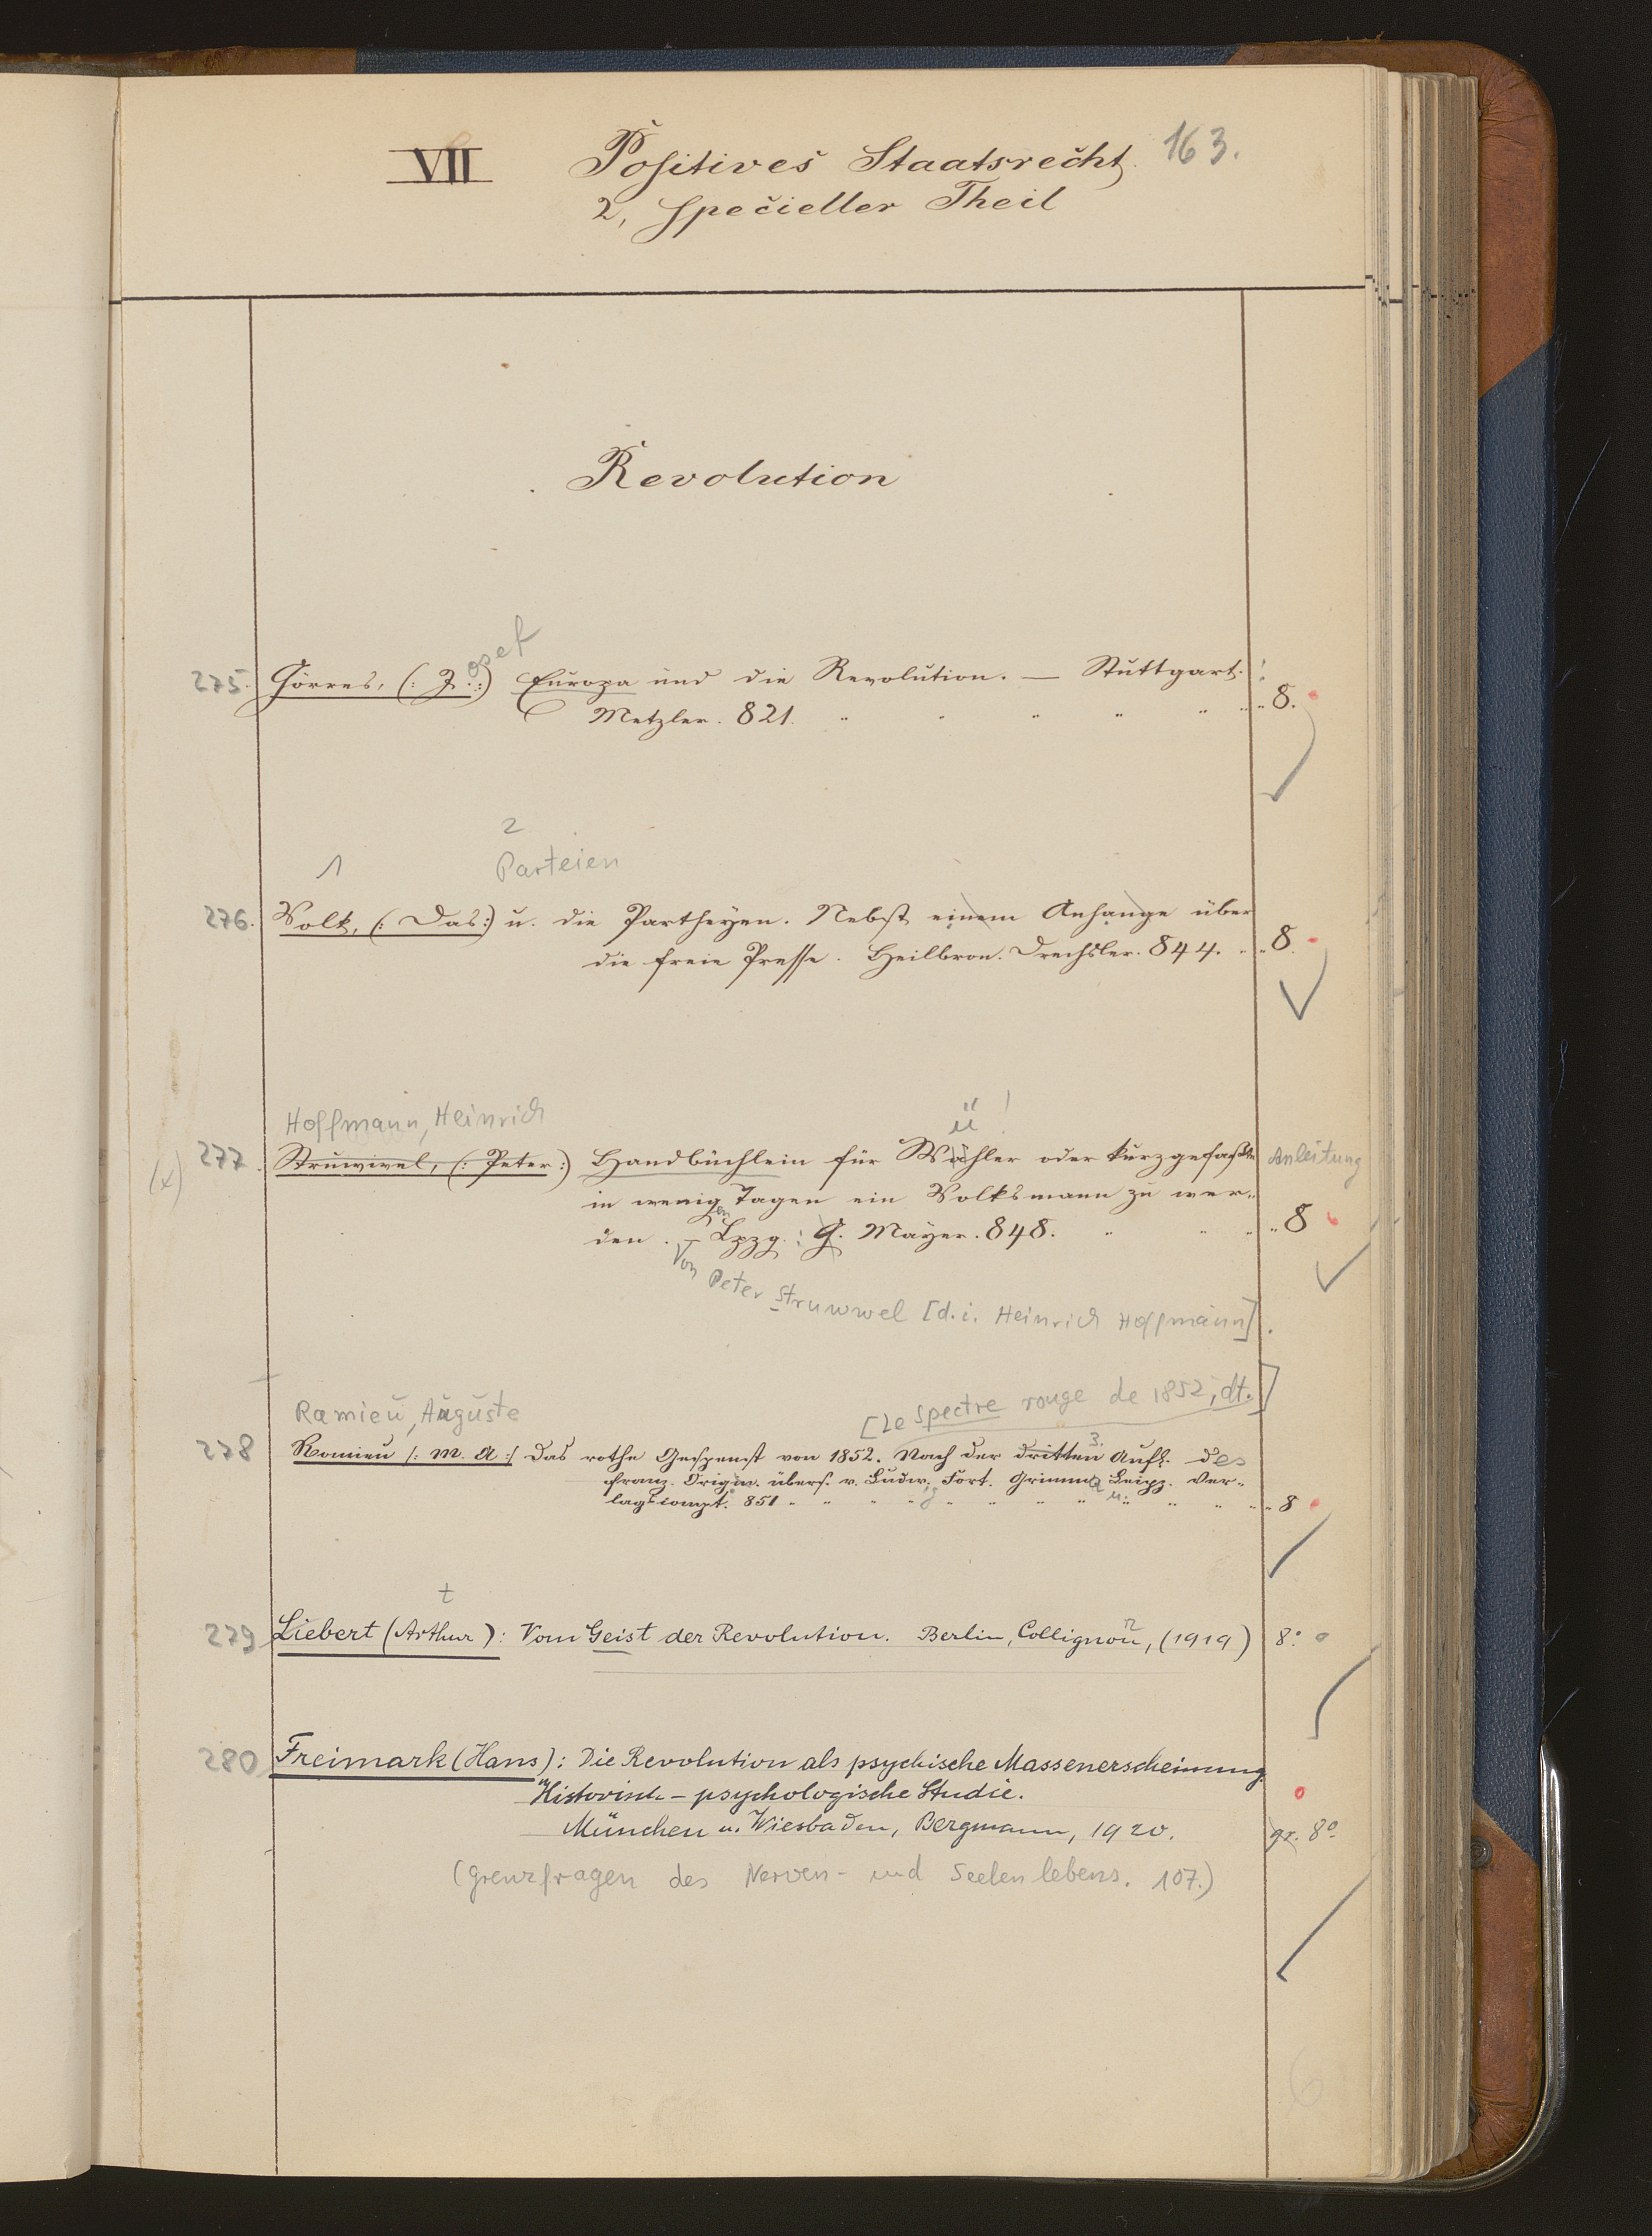 VII Positives Staatsrecht. 163.
2, Specieller Theil
Revolution
osef
275. Görres, (: J. :) Europa und die Revolution. — Stuttgart.
Metzler. 821. 8.
2
1 Parteien
276. Volk, (: Das :) u. die Partheyen. Nebst einem Anhange über
die freie Presse. Heilbron. Drechsler. 844. 8.
Hoffmann, Heinrich ü !
(x) 277. Struwwel, (: Peter :) Handbüchlein für Wühler oder kurzgefaßte Anleitung
in wenigen Tagen ein Volksmann zu wer-
den. — Lpzg. : G. Mayer. 848. 8
Von Peter Struwwel [d. i. Heinrich Hoffmann].
[Le Spectre rouge de 1852, dt.]
Ramieu, Auguste
3.
278 Romieu /: M. A :/ Das rothe Gespenst von 1852. Nach der dritten Aufl. des
franz. Origin. übers. v. Ludw. Fort. Grimma u. Leipz. Ver-
lagscompt. 851 8
t
279 Liebert (Arthur): Vom Geist der Revolution. Berlin, Collignon, (1919) 8°
280 Freimark (Hans): Die Revolution als psychische Massenerscheinung.
Historisch-psychologische Studie.
München u. Wiesbaden, Bergmann, 1920. gr. 8°
(Grenzfragen des Nerven- und Seelenlebens. 107.)